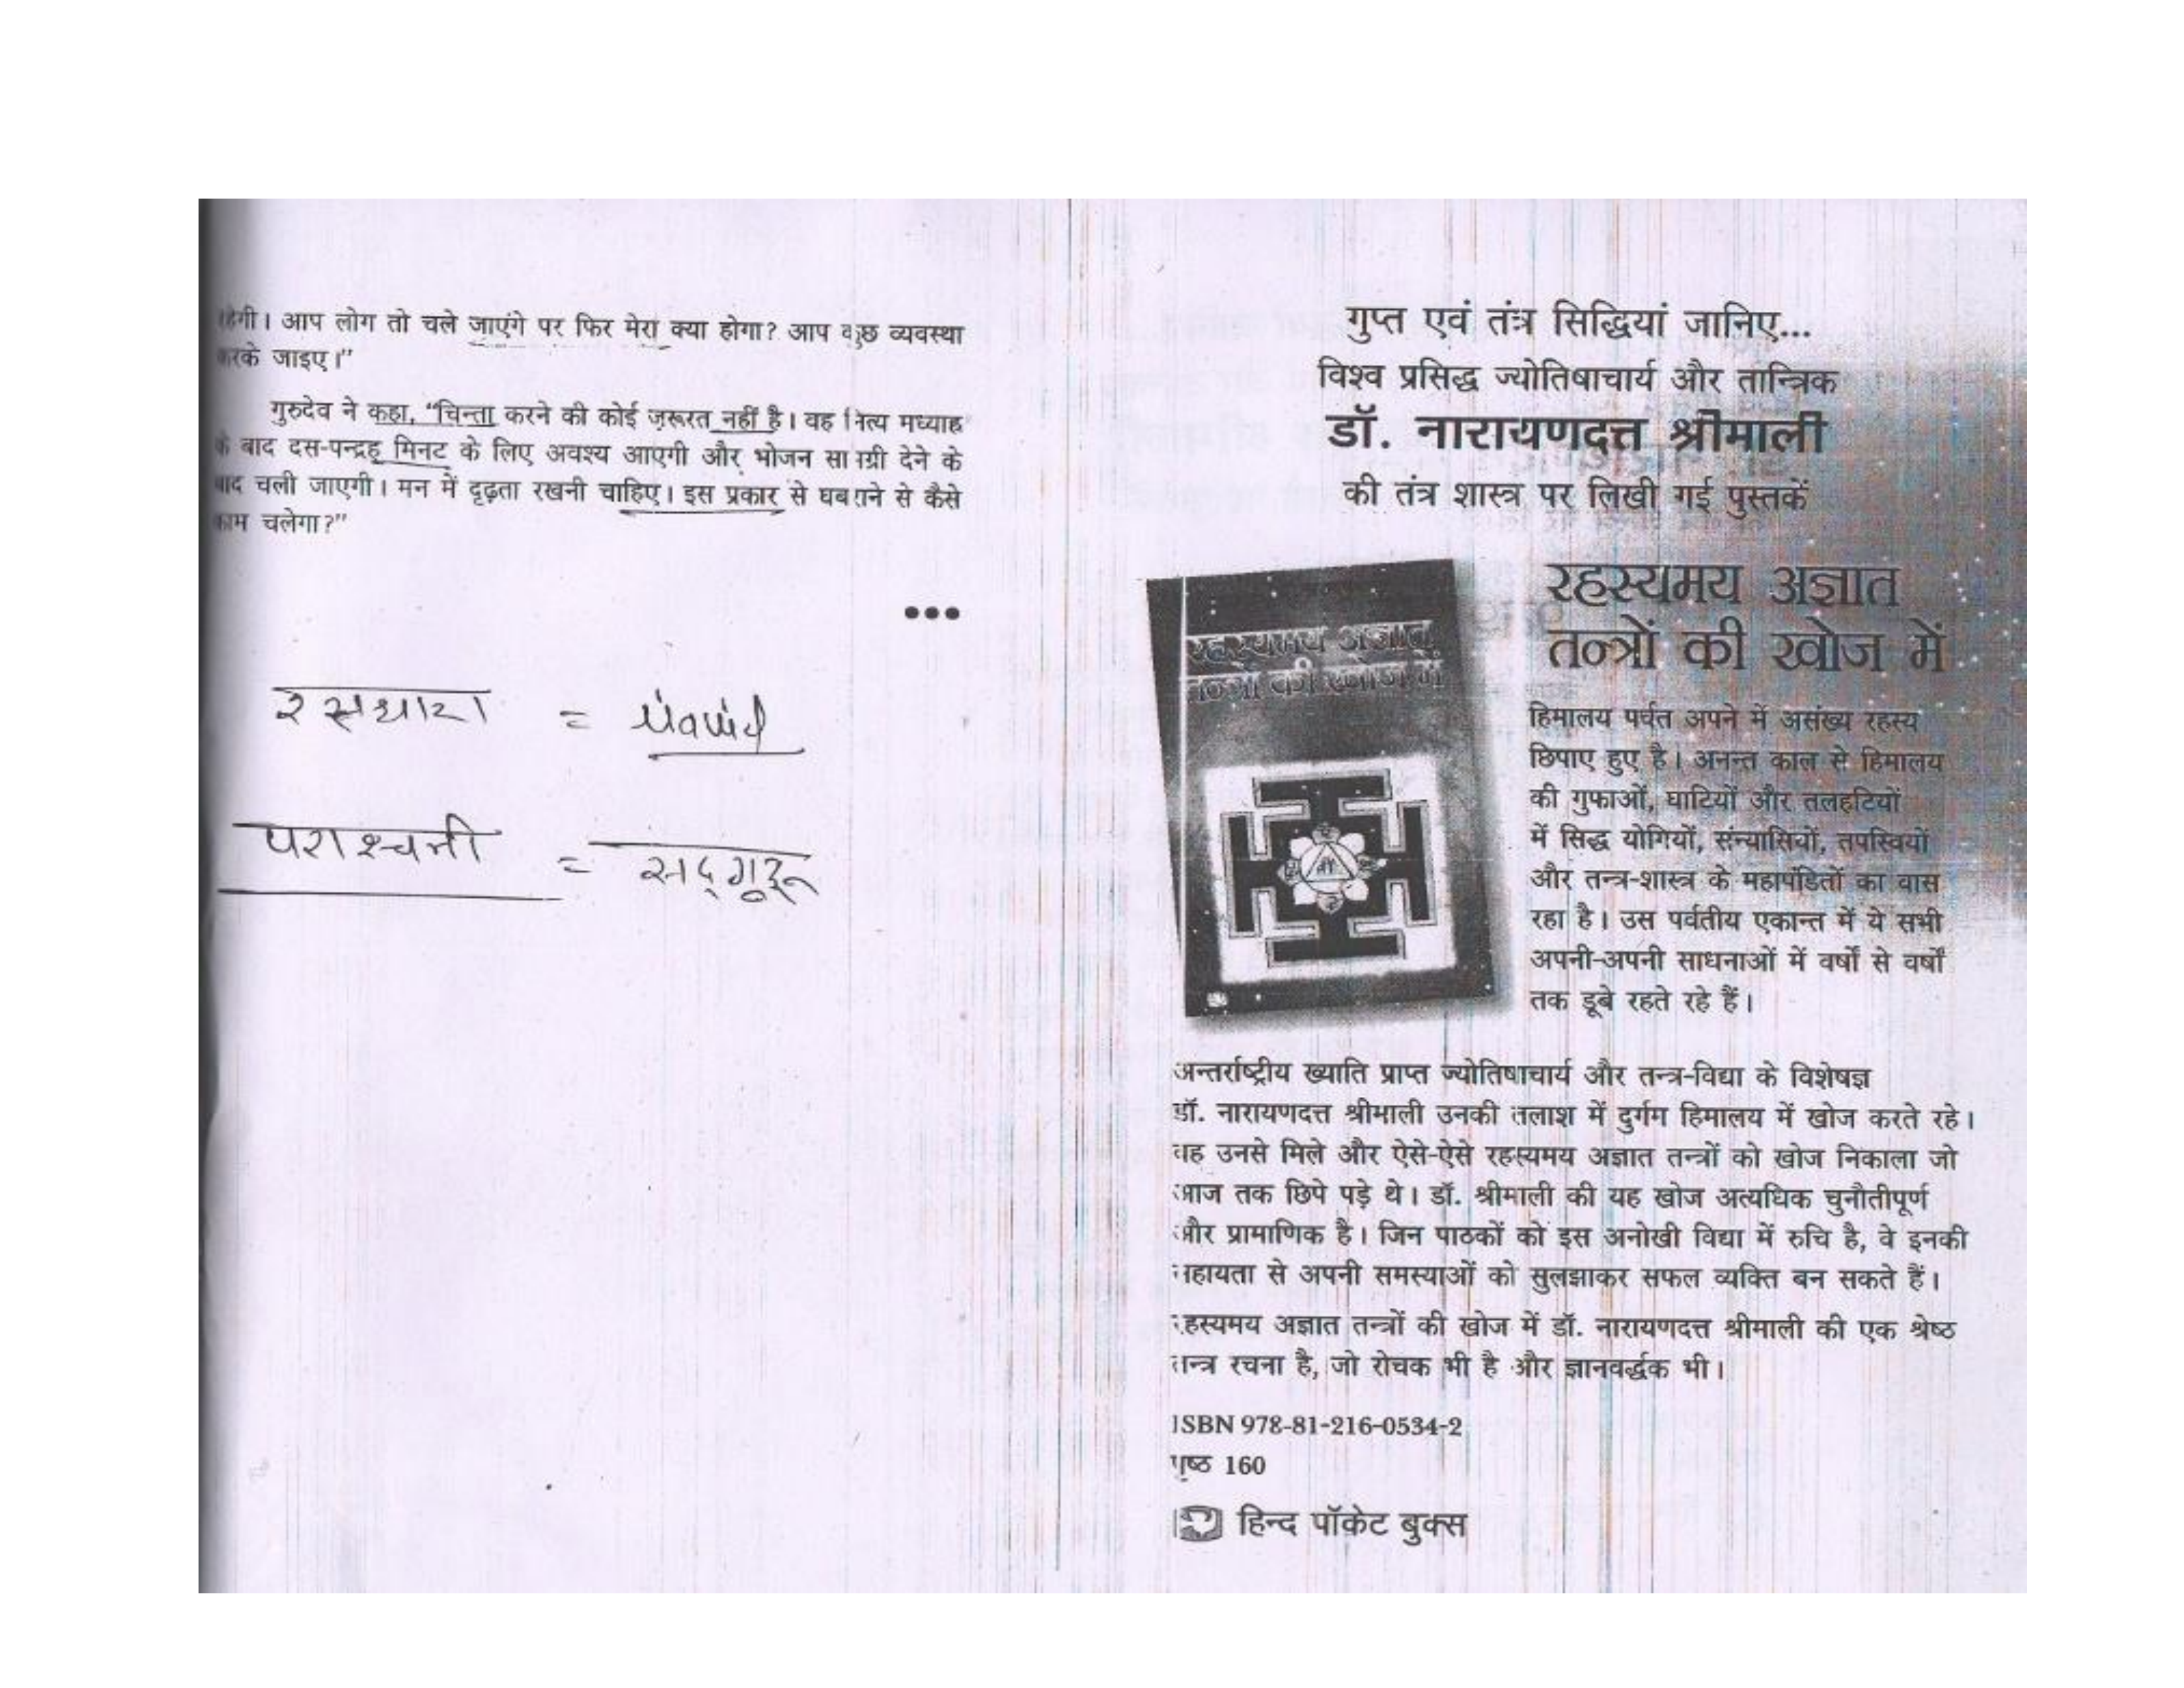 रहेगी। आप लोग तो चले जाएंगे पर फिर मेरा क्या होगा? आप कुछ व्यवस्था
करके जाइए।”
गुरुदेव ने कहा, “चिन्ता करने की कोई ज़रूरत नहीं है। वह नित्य मध्याह्न
के बाद दस-पन्द्रह मिनट के लिए अवश्य आएगी और भोजन सामग्री देने के
बाद चली जाएगी। मन में दृढ़ता रखनी चाहिए। इस प्रकार से घबराने से कैसे
काम चलेगा?”
•••
रसधारा =
= सद्गुरू
गुप्त एवं तंत्र सिद्धियां जानिए...
विश्व प्रसिद्ध ज्योतिषाचार्य और तान्त्रिक
डॉ. नारायणदत्त श्रीमाली
की तंत्र शास्त्र पर लिखी गई पुस्तकें
रहस्यमय अज्ञात
तन्त्रों की खोज में
रहस्यमय अज्ञात
तन्त्रों की खोज में
हिमालय पर्वत अपने में असंख्य रहस्य
छिपाए हुए है। अनन्त काल से हिमालय
की गुफाओं, घाटियों और तलहटियों
में सिद्ध योगियों, संन्यासियों, तपस्वियों
और तन्त्र-शास्त्र के महापंडितों का वास
रहा है। उस पर्वतीय एकान्त में ये सभी
अपनी-अपनी साधनाओं में वर्षों से वर्षों
तक डूबे रहते रहे हैं।
अन्तर्राष्ट्रीय ख्याति प्राप्त ज्योतिषाचार्य और तन्त्र-विद्या के विशेषज्ञ
डॉ. नारायणदत्त श्रीमाली उनकी तलाश में दुर्गम हिमालय में खोज करते रहे।
वह उनसे मिले और ऐसे-ऐसे रहस्यमय अज्ञात तन्त्रों को खोज निकाला जो
आज तक छिपे पड़े थे। डॉ. श्रीमाली की यह खोज अत्यधिक चुनौतीपूर्ण
और प्रामाणिक है। जिन पाठकों को इस अनोखी विद्या में रुचि है, वे इनकी
सहायता से अपनी समस्याओं को सुलझाकर सफल व्यक्ति बन सकते हैं।
रहस्यमय अज्ञात तन्त्रों की खोज में डॉ. नारायणदत्त श्रीमाली की एक श्रेष्ठ
तन्त्र रचना है, जो रोचक भी है और ज्ञानवर्द्धक भी।
ISBN 978-81-216-0534-2
पृष्ठ 160
हिन्द पॉकेट बुक्स